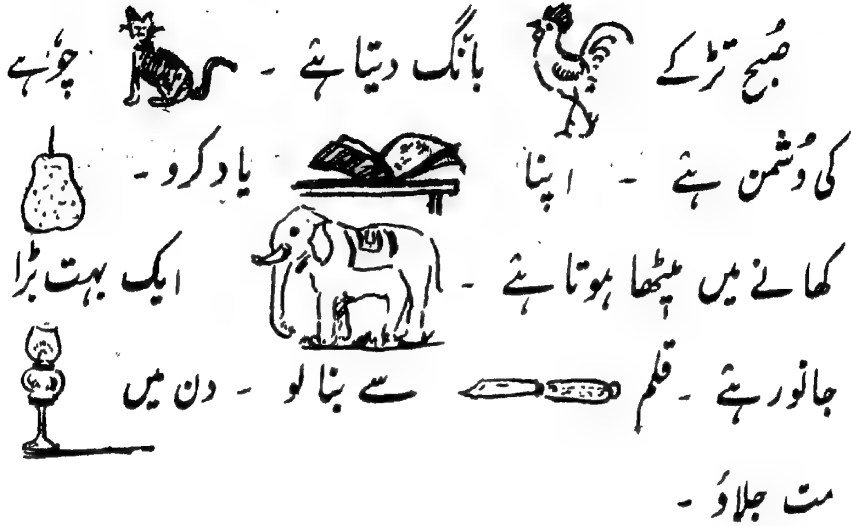 صُبح تڑکے بانگ دیتا ہئے ۔ چوُہے
کی دُشمن ہئے ۔ اپنا یاد کرو ۔
کھانے میں میٹھا ہوتا ہئے ۔ ایک بہت بڑا
جانور ہئے ۔ قلم سے بنا لو ۔ دن میں
مت جلاؤ ۔